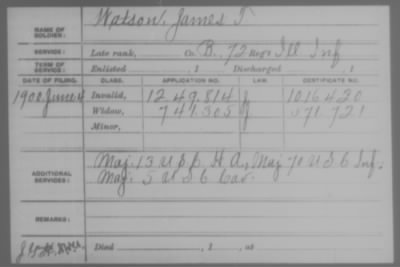 NAME OF SOLDIER: Watson, James T
SERVICE: Late rank, Co. B, 72 Reg't Ill Inf
TERM OF SERVICE: Enlisted , 1 Discharged , 1
DATE OF FILING. CLASS. APPLICATION NO. LAW. CERTIFICATE NO.
1900 June 4 Invalid, 1249.814 1016420
Widow, 747.305 571.721
Minor,
ADDITIONAL SERVICES: Maj. 13 U S C H A, Maj 70 U S C Inf.
Maj. 5 U S C Cav.
REMARKS:
Died , 1 , at